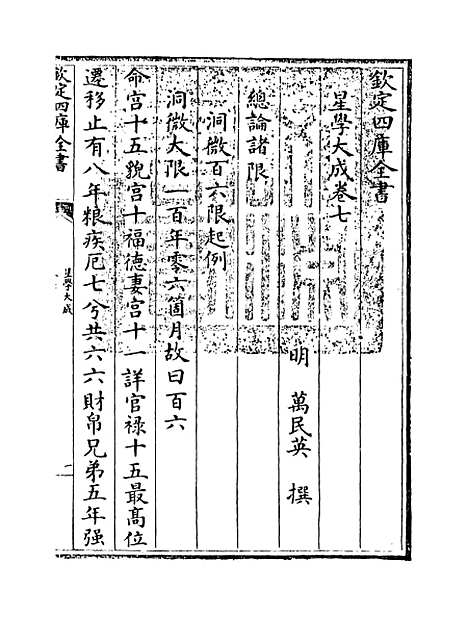 欽定四庫全書
星學大成卷七
明 萬民英 撰
總論諸限
洞微百六限起例
洞微大限一百年零六箇月故曰百六
命宫十五貌宫十福德妻宫十一詳官禄十五最髙位
遷移止有八年粮疾厄七兮共六六財帛兄弟五年强
欽定四庫全書
星學大成